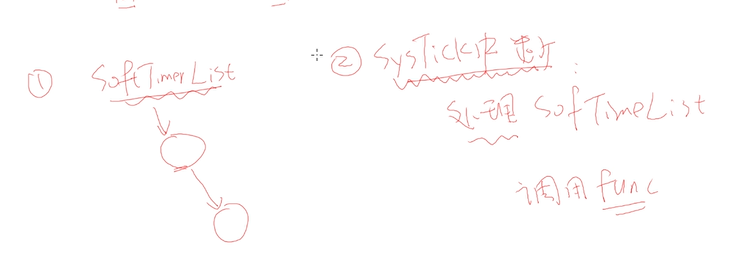 ① SoftTimerList
② SysTick中断:
处理 SofTimeList
调用func